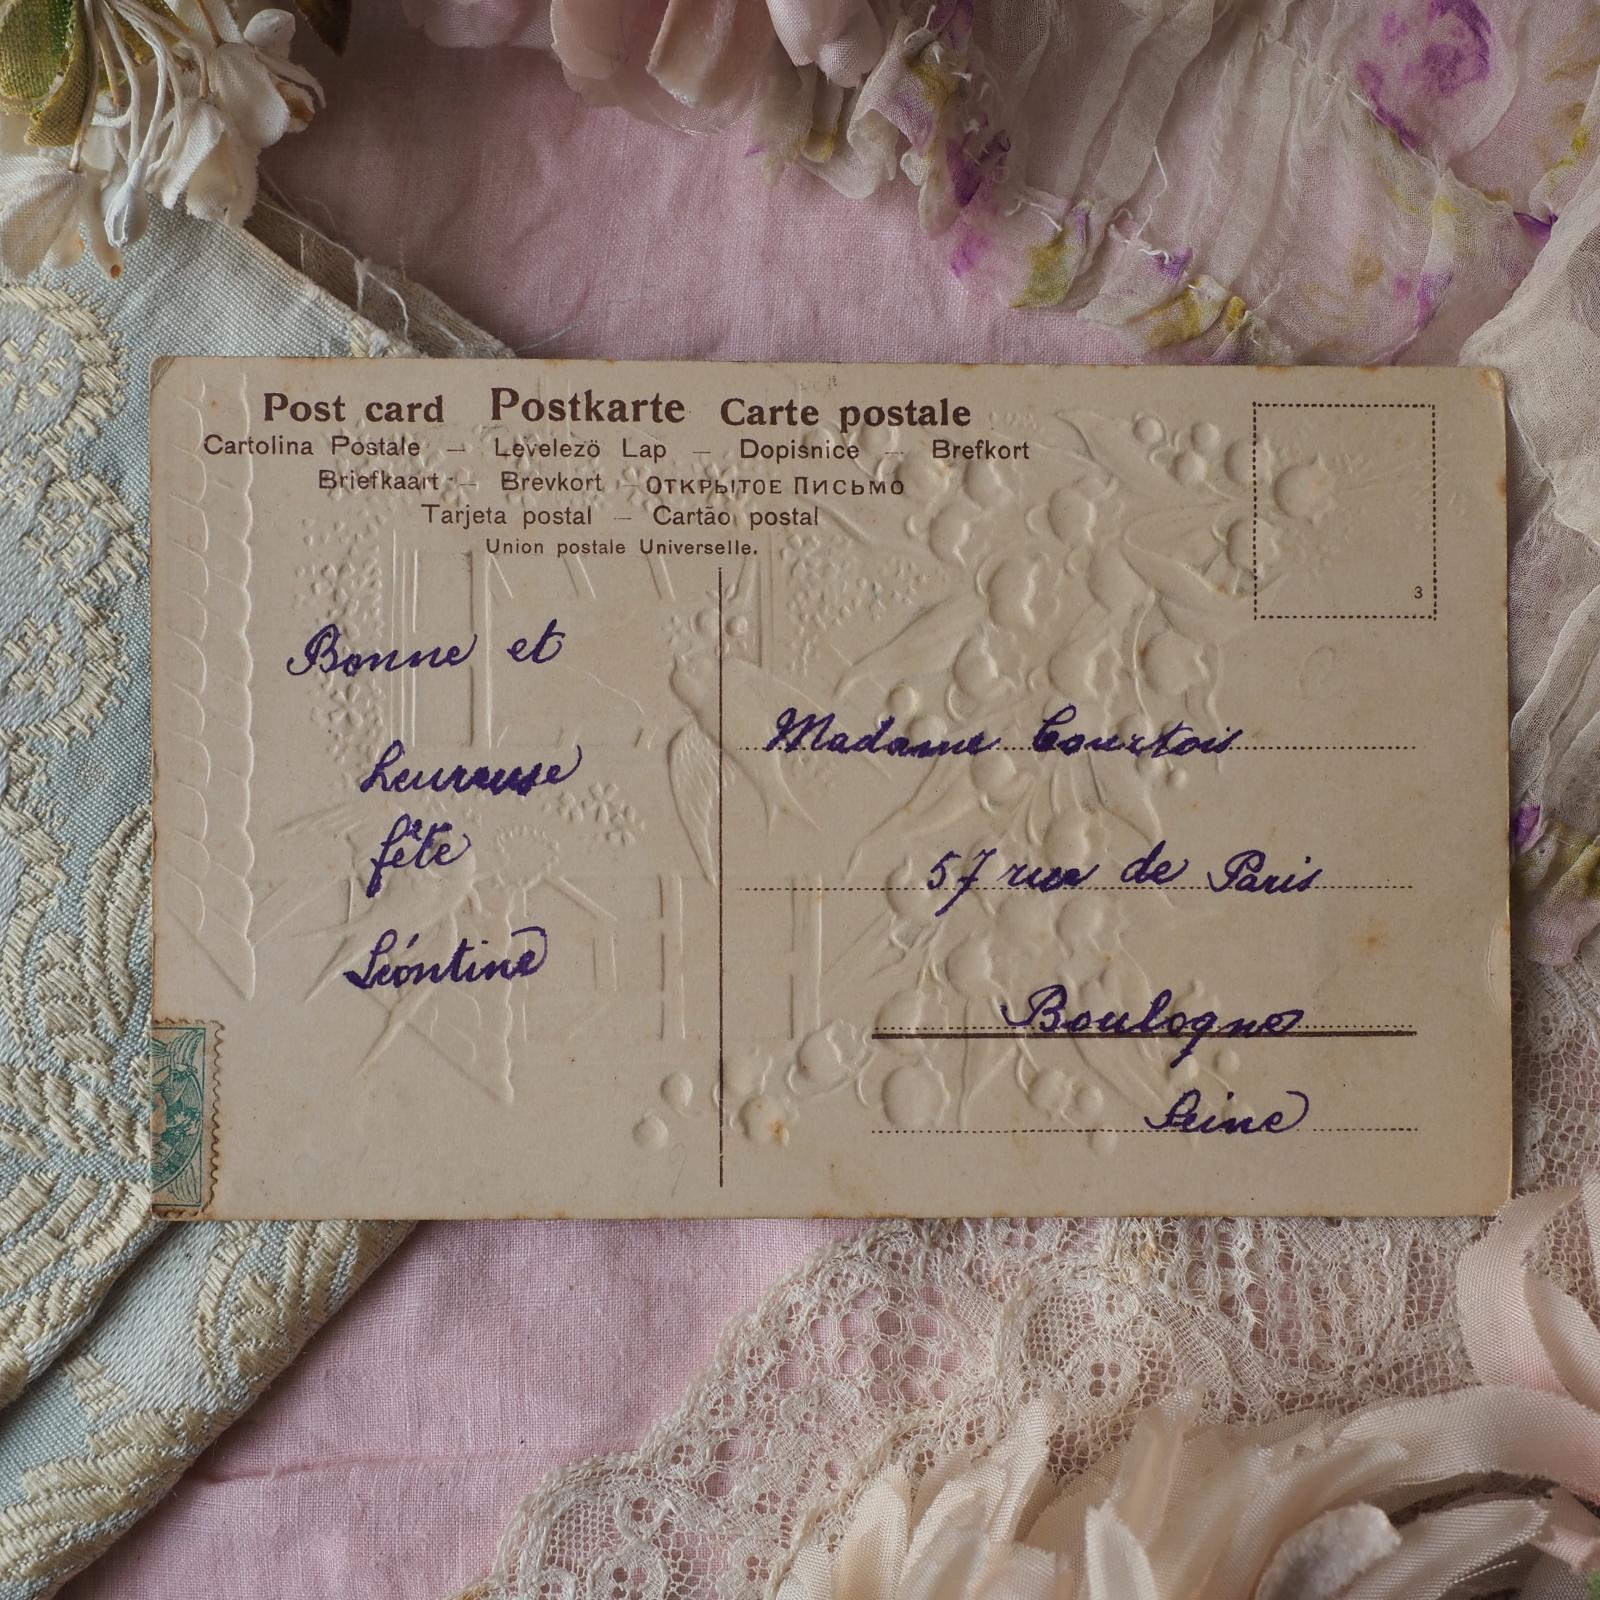 Post card Postkarte Carte postale
Cartolina Postale – Levelező Lap – Dopisnice – Brefkort
Briefkaart – Brevkort – ОТКРЫТОЕ ПИСЬМО
Tarjeta postal – Cartão postal
Union postale Universelle.
3
Bonne et
heureuse
fête
Léontine
Madame Courtois
57 rue de Paris
Boulogne
Seine